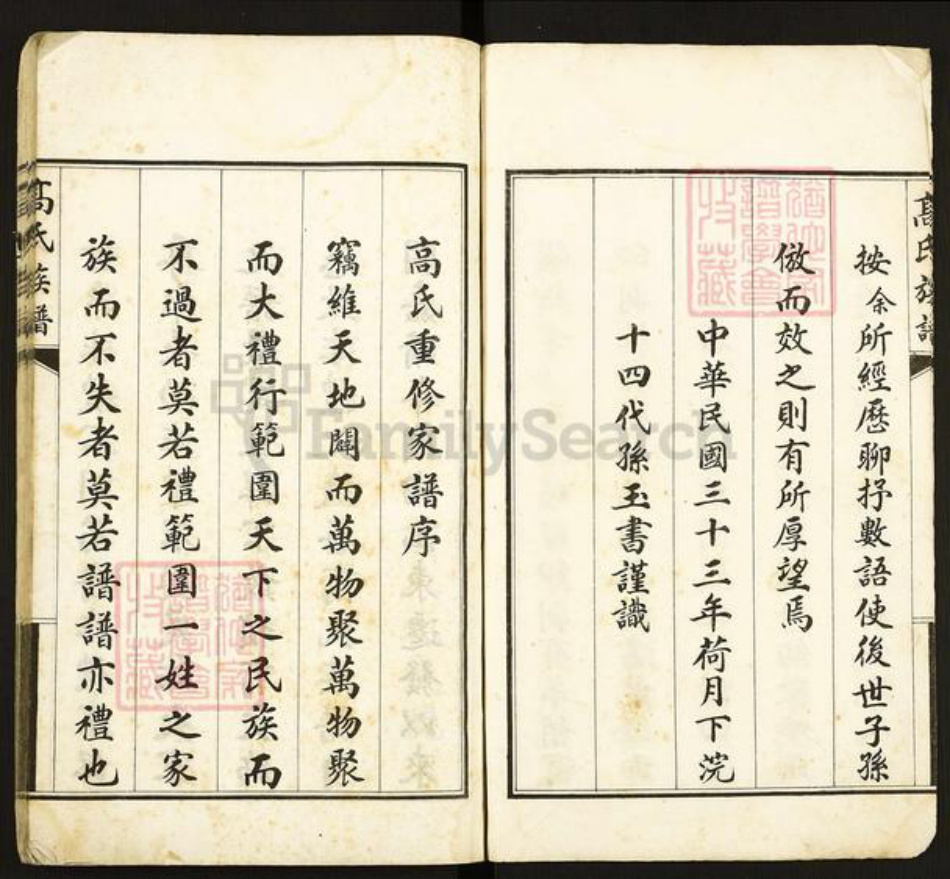 高氏族譜
按余所經歷聊抒數語使後世子孫
倣而效之則有所厚望焉
中華民國三十三年荷月下浣
十四代孫玉書謹識
高氏重修家譜序
竊維天地闢而萬物聚萬物聚
而大禮行範圍天下之民族而
不過者莫若禮範圍一姓之家
族而不失者莫若譜譜亦禮也
高氏族譜
FamilySearch